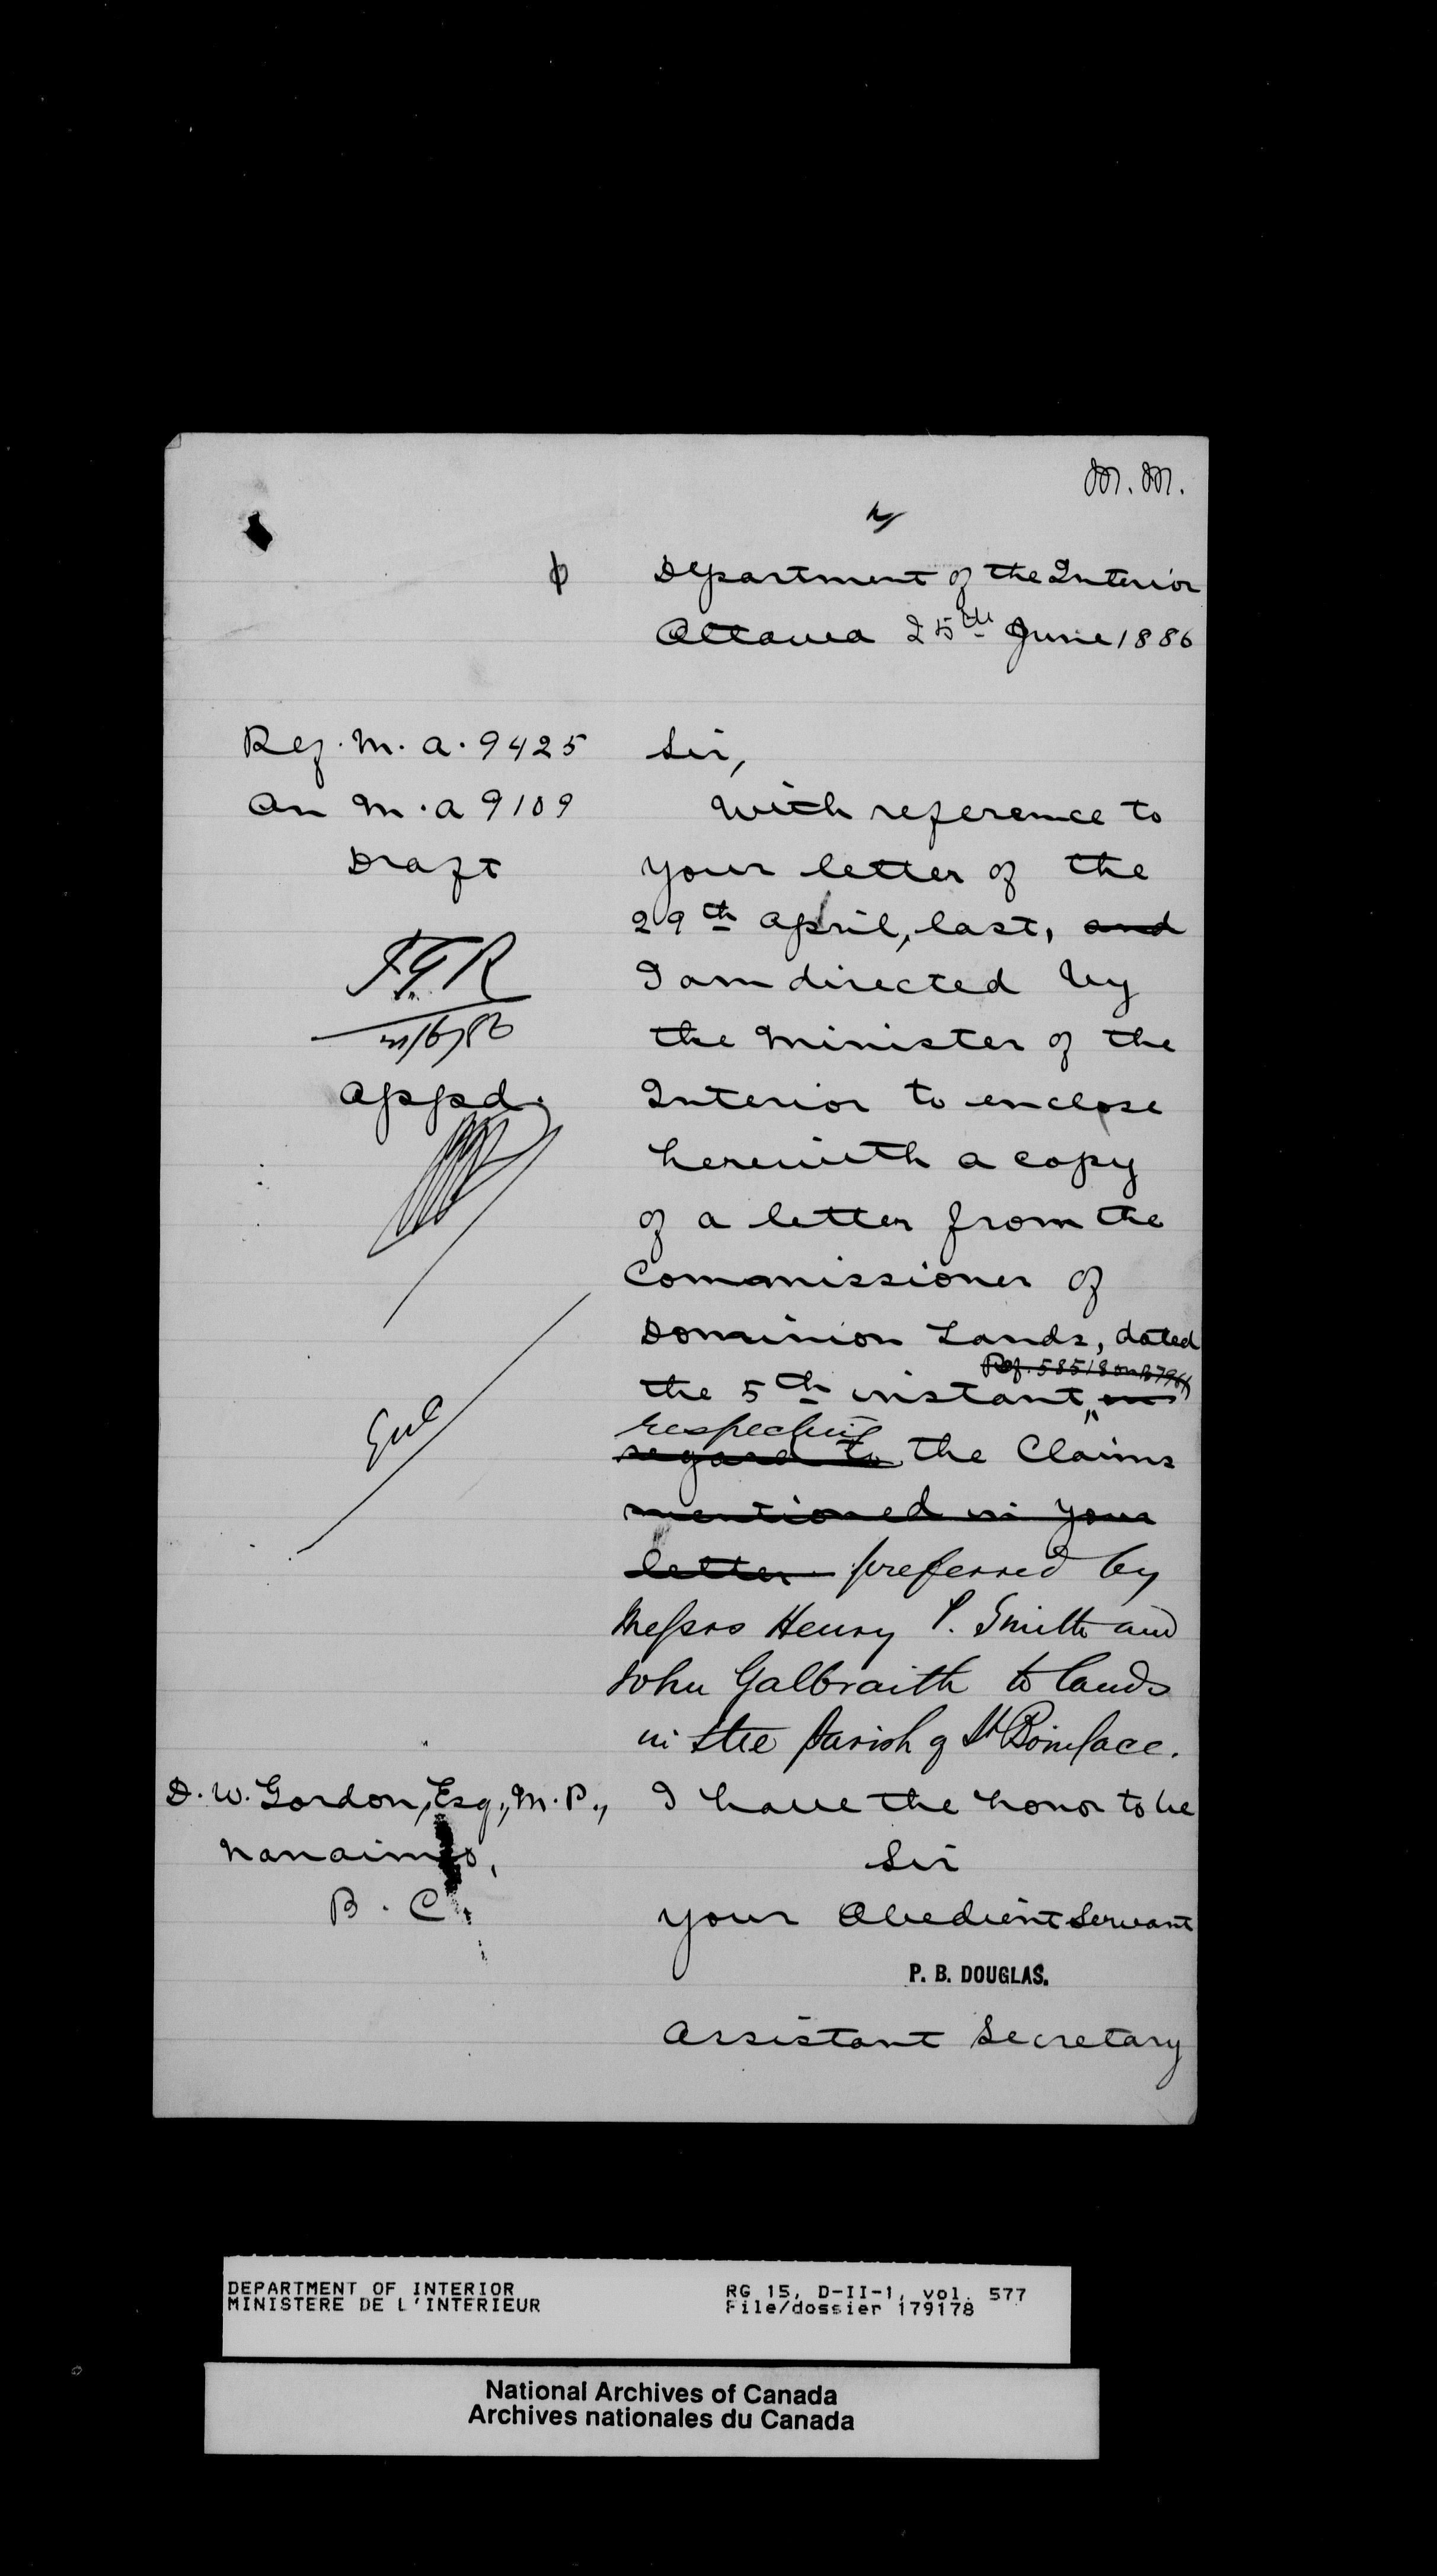 M.M.
Department of the Interior
Ottawa 25th June 1886
Ref. M. A. 9425
on M. A 9109
Draft
F.G.R
appd.
Sir,
With reference to
your letter of the
29th April, last, and
I am directed by
the Minister of the
Interior to enclose
herewith a copy
of a letter from the
Commissioner of
Dominion Lands, dated
Ref. 58518 on
the 5th instant, in
respecting
regard to the Claims
mentioned in your
letter preferred by
Messrs Henry P. Smith and
John Galbraith to lands
in the Parish of St Boniface.
D. W. Gordon, Esq., M.P.,
Nanaimo,
B. C.
I have the honor to be
Sir
Your Obedient Servant
P. B. DOUGLAS.
Assistant Secretary
DEPARTMENT OF INTERIOR
MINISTERE DE L'INTERIEUR
RG 15, D-II-1, vol. 577
File/dossier 179178
National Archives of Canada
Archives nationales du Canada